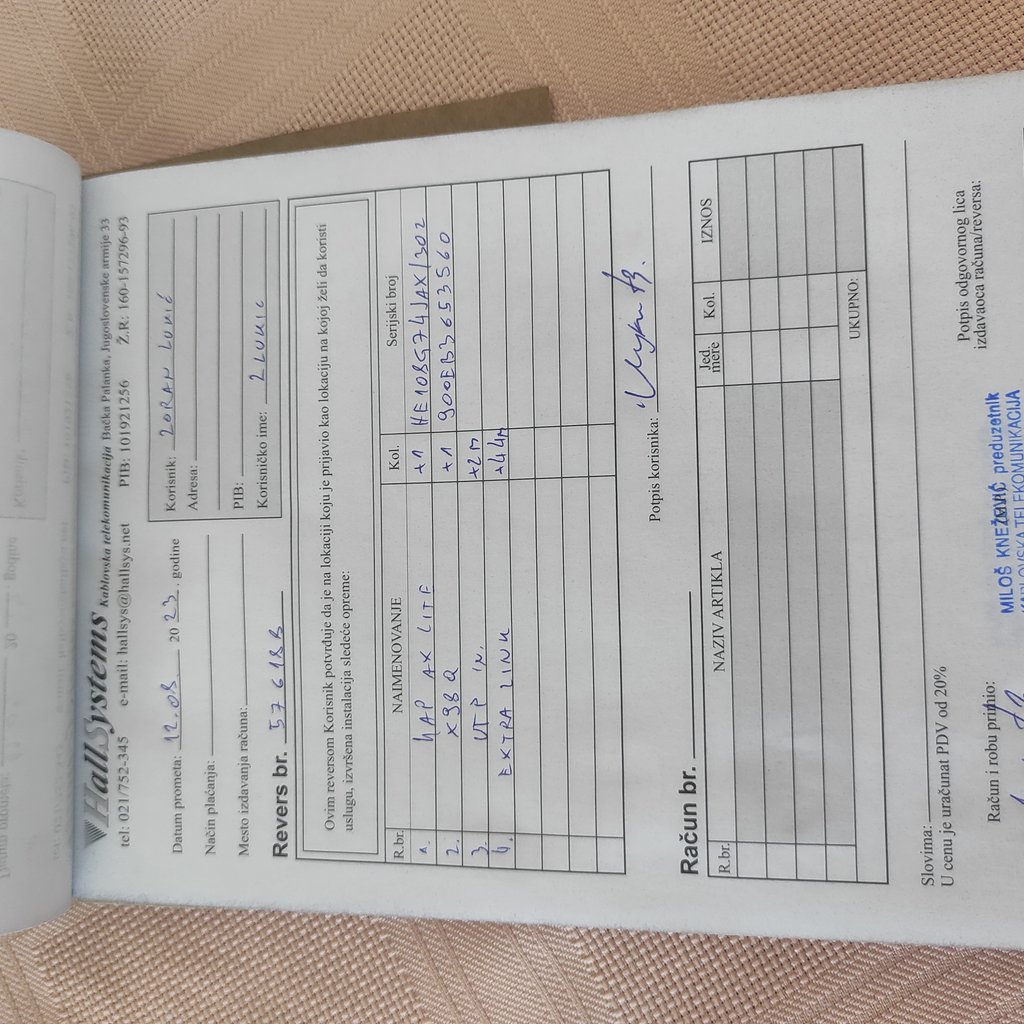 HallSystems Kablovska telekomunikacija Bačka Palanka, Jugoslovenske armije 33
tel: 021/752-345 e-mail: hallsys@hallsys.net PIB: 101921256 Ž.R: 160-157296-93
Datum prometa: 12.08 20 23. godine
Način plaćanja:
Mesto izdavanja računa:
Korisnik: ZORAN LUKIĆ
Adresa:
PIB:
Korisničko ime: ZLUKIC
Revers br. 57618B
Ovim reversom Korisnik potvrđuje da je na lokaciji koju je prijavio kao lokaciju na kojoj želi da koristi
uslugu, izvršena instalacija sledeće opreme:
R.br. NAIMENOVANJE Kol. Serijski broj
1. HAP AX LITE +1 HE108G74JAX/302
2. X98Q +1 900EB36553560
3. UTP IN. +2m
4. EXTRA LINK +44m
Potpis korisnika:
Račun br.
R.br. NAZIV ARTIKLA Jed. mere Kol. IZNOS
UKUPNO:
Slovima:
U cenu je uračunat PDV od 20%
Račun i robu primio:
Potpis odgovornog lica
izdavaoca računa/reversa:
MILOŠ KNEŽEVIĆ preduzetnik
KABLOVSKA TELEKOMUNIKACIJA